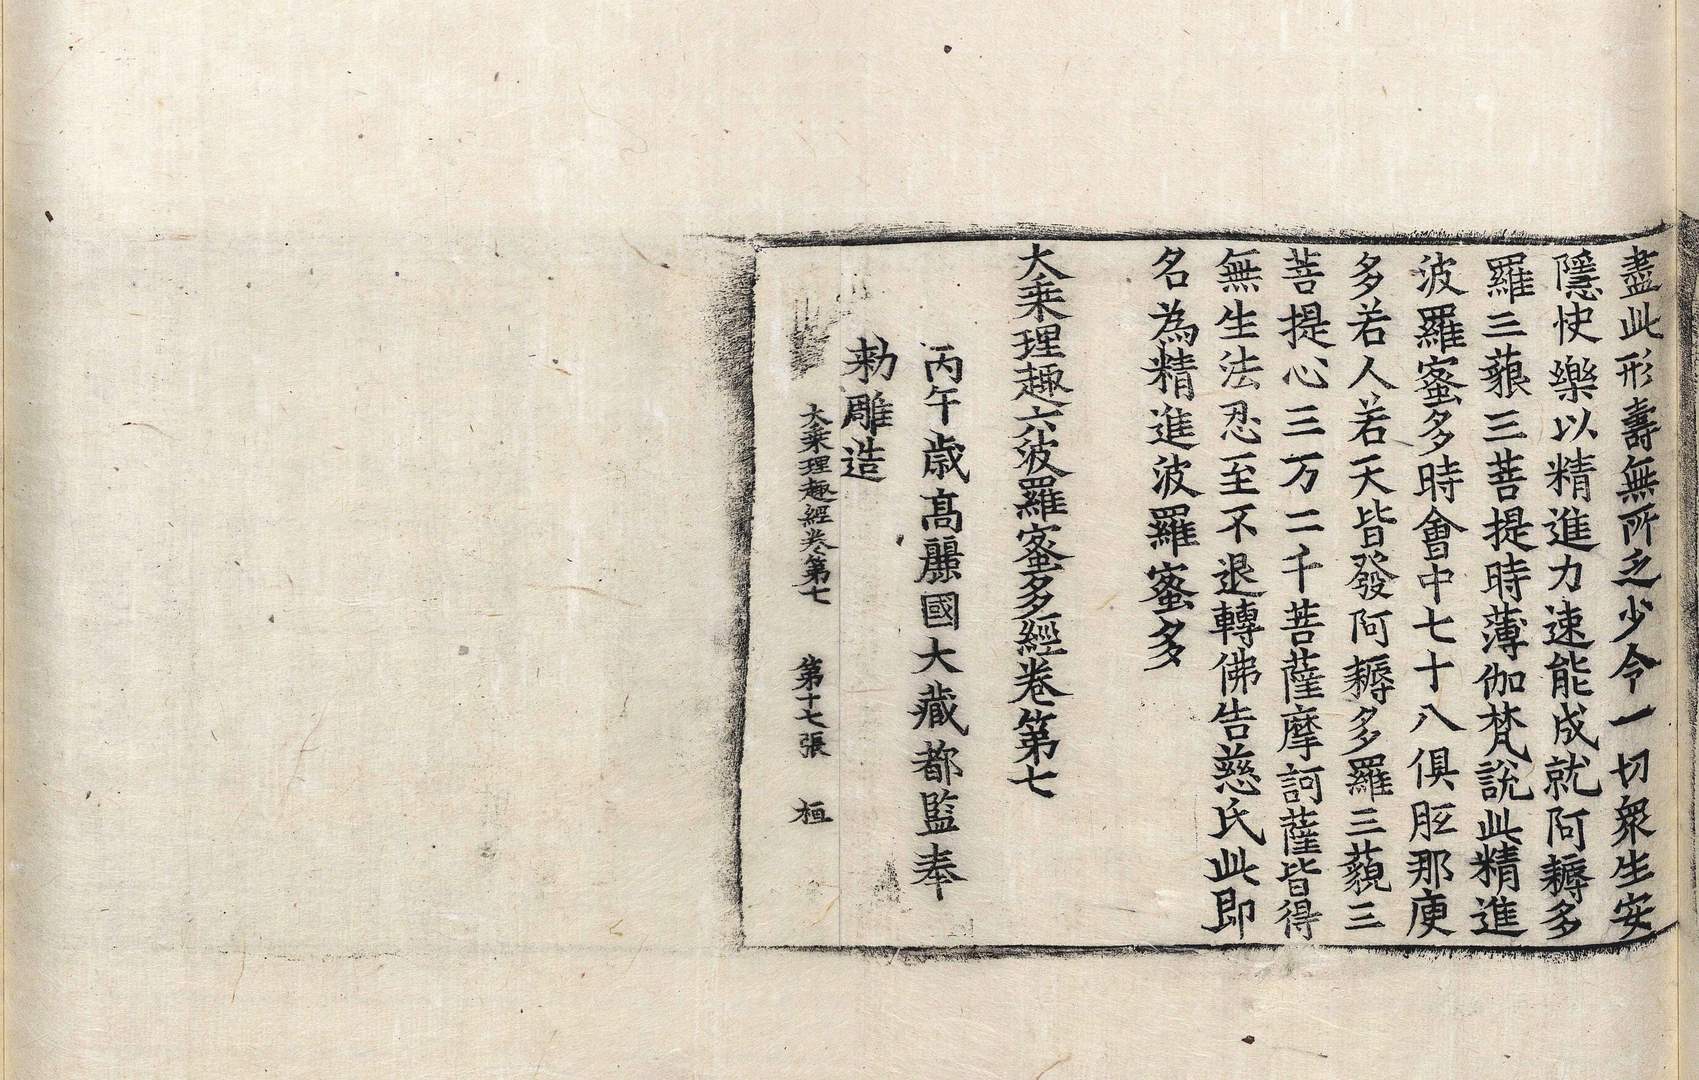 盡此形壽無所乏少令一切衆生安
隱快樂以精進力速能成就阿耨多
羅三藐三菩提時薄伽梵說此精進
波羅蜜多時會中七十八俱胝那庾
多若人若天皆發阿耨多羅三藐三
菩提心三万二千菩薩摩訶薩皆得
無生法忍至不退轉佛告慈氏此即
名為精進波羅蜜多
大乘理趣六波羅蜜多經卷第七
丙午歲高麗國大藏都監奉
勅雕造
大乘理趣經卷第七 第十七張 桓